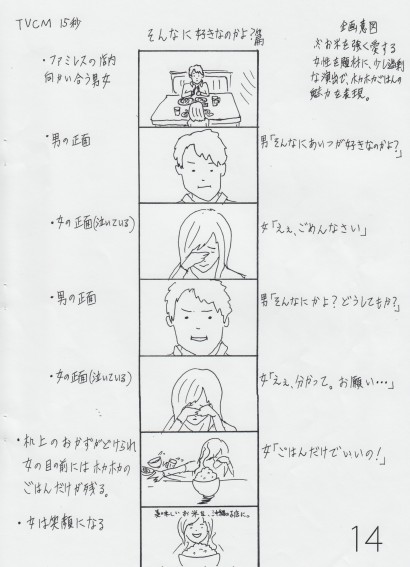 TVCM 15秒
そんなに好きなのかよ?篇
企画意図
お米を強く愛する
女性を題材に、少し過剰
な演出で、ホカホカごはんの
魅力を表現。
・ファミレスの店内
向かい合う男女
・男の正面
男「そんなにあいつが好きなのかよ?」
・女の正面(泣いている)
女「ええ、ごめんなさい」
・男の正面
男「そんなにかよ?どうしてもか?」
・女の正面(泣いている)
女「ええ、分かって。お願い…」
・机上のおかずがどけられ
女の目の前にはホカホカの
ごはんだけが残る。
女「ごはんだけでいいの!」
・女は笑顔になる
美味しいお米を、
14